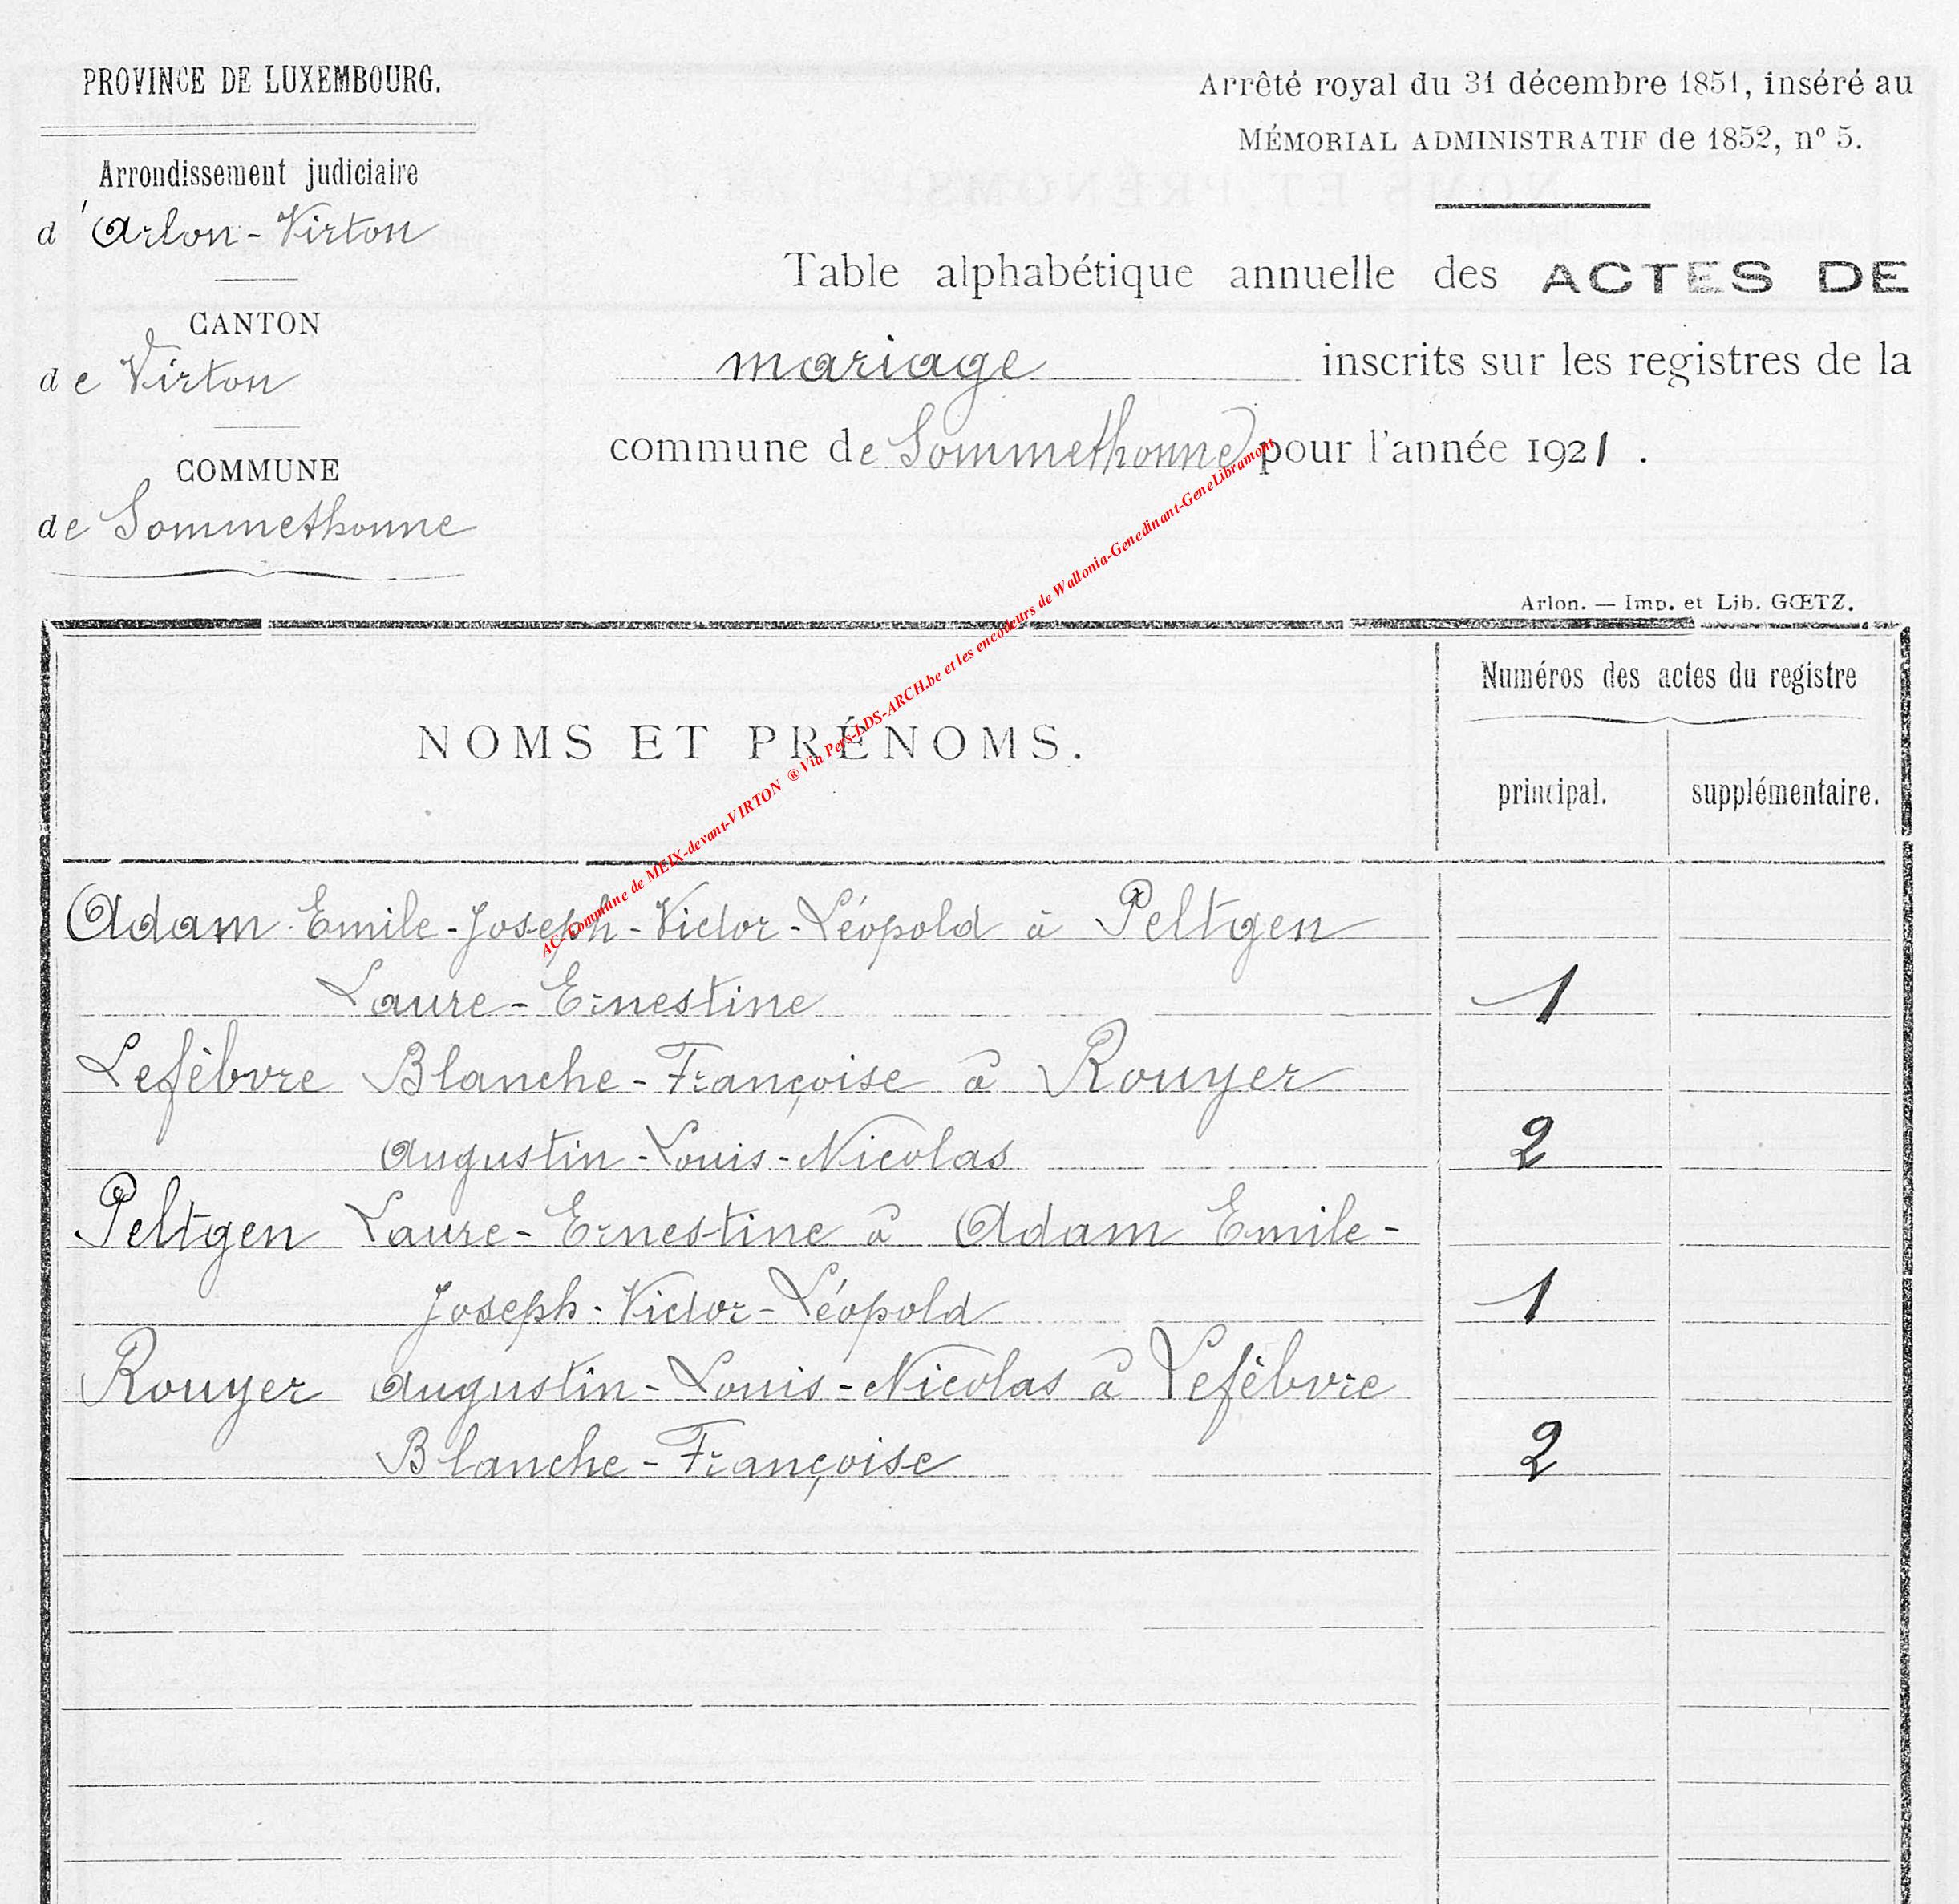 PROVINCE DE LUXEMBOURG.
Arrondissement judiciaire
d'Arlon-Virton
CANTON
de Virton
COMMUNE
de Sommethonne
Arrêté royal du 31 décembre 1851, inséré au
MÉMORIAL ADMINISTRATIF de 1852, nº 5.
Table alphabétique annuelle des ACTES DE
mariage inscrits sur les registres de la
commune de Sommethonne pour l'année 1921.
Arlon. — Imp. et Lib. GŒTZ.
NOMS ET PRÉNOMS.
Numéros des actes du registre
principal. supplémentaire.
AC-Commune de MEIX-devant-VIRTON ® Via Pers-LDS-ARCH.be et les encodeurs de Wallonia-Genedinant-GeneLibramont
Adam Emile-Joseph-Victor-Léopold à Peltgen
Laure-Ernestine 1
Lefèbvre Blanche-Françoise à Rouyer
Augustin-Louis-Nicolas 2
Peltgen Laure-Ernestine à Adam Emile-
Joseph-Victor-Léopold 1
Rouyer Augustin-Louis-Nicolas à Lefèbvre
Blanche-Françoise 2